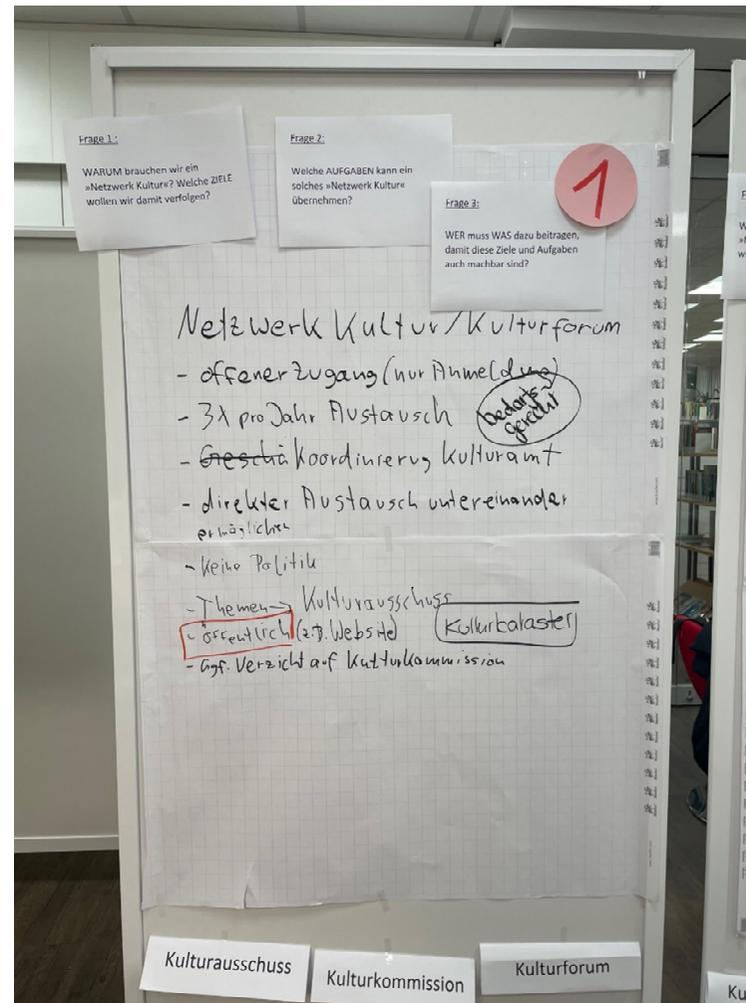 Frage 1:
WARUM brauchen wir ein
»Netzwerk Kultur«? Welche ZIELE
wollen wir damit verfolgen?
Frage 2:
Welche AUFGABEN kann ein
solches »Netzwerk Kultur«
übernehmen?
Frage 3:
WER muss WAS dazu beitragen,
damit diese Ziele und Aufgaben
auch machbar sind?
1
Netzwerk Kultur/Kulturforum
- offener Zugang (nur Anmeldung)
- 3x pro Jahr Austausch
bedarfs-
gerecht
- Geschä Koordinierug Kulturamt
- direkter Austausch untereinander
ermöglichen
- keine Politik
- Themen → Kulturausschuss
- öffentlich (z.B. Website)
Kulturkataster
- ggf. Verzicht auf Kulturkommission
Kulturausschuss
Kulturkommission
Kulturforum
Ku